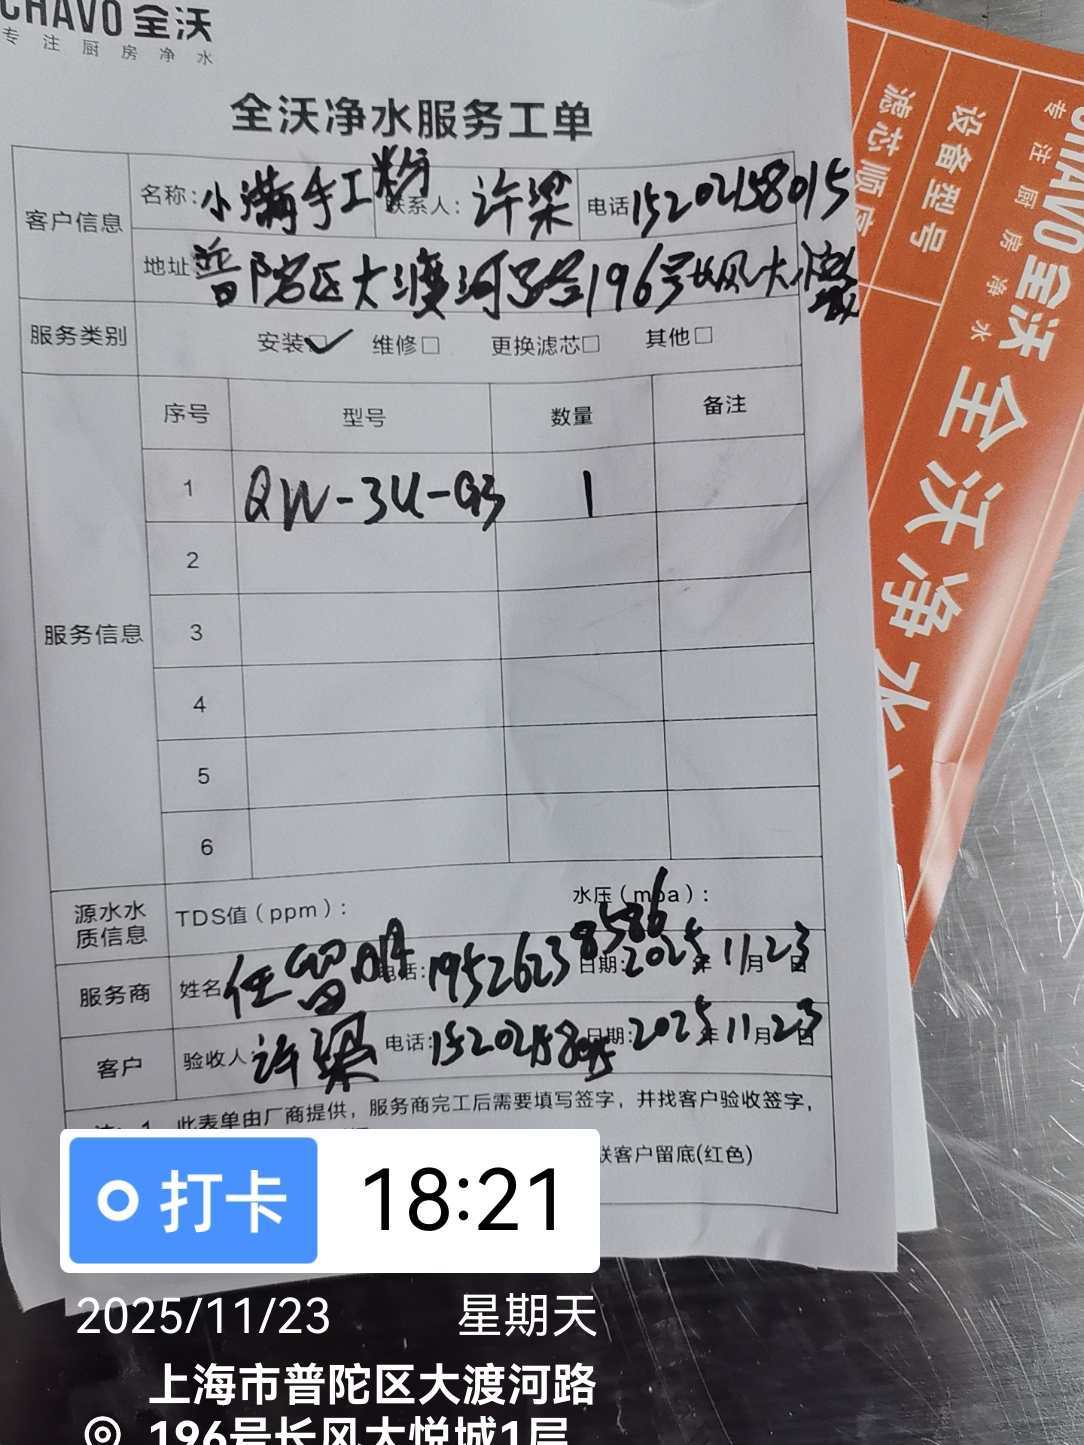 CHAVO 全沃
专注厨房净水
全沃净水服务工单
客户信息 名称:小满手工粉 联系人:许梁 电话15202158015
地址 普陀区大渡河路196号长风大悦城
服务类别 安装☑ 维修□ 更换滤芯□ 其他□
服务信息 序号 型号 数量 备注
1 QW-3U-G3 1
2
3
4
5
6
源水水质信息 TDS值(ppm): 水压(mpa):
服务商 姓名 任留明 电话:19526238586 日期:2025年11月23日
客户 验收人 许梁 电话: 日期:2025年11月23日
注:1、此表单由厂商提供,服务商完工后需要填写签字,并找客户验收签字,
联客户留底(红色)
打卡 18:21
2025/11/23 星期天
上海市普陀区大渡河路
196号长风大悦城1层
CHAVO全沃
专注厨房净水
全沃净水
设备型号
滤芯顺